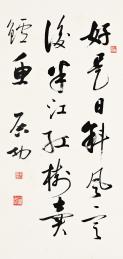 好是日斜風定
後半江紅樹賣
鱸魚 启功